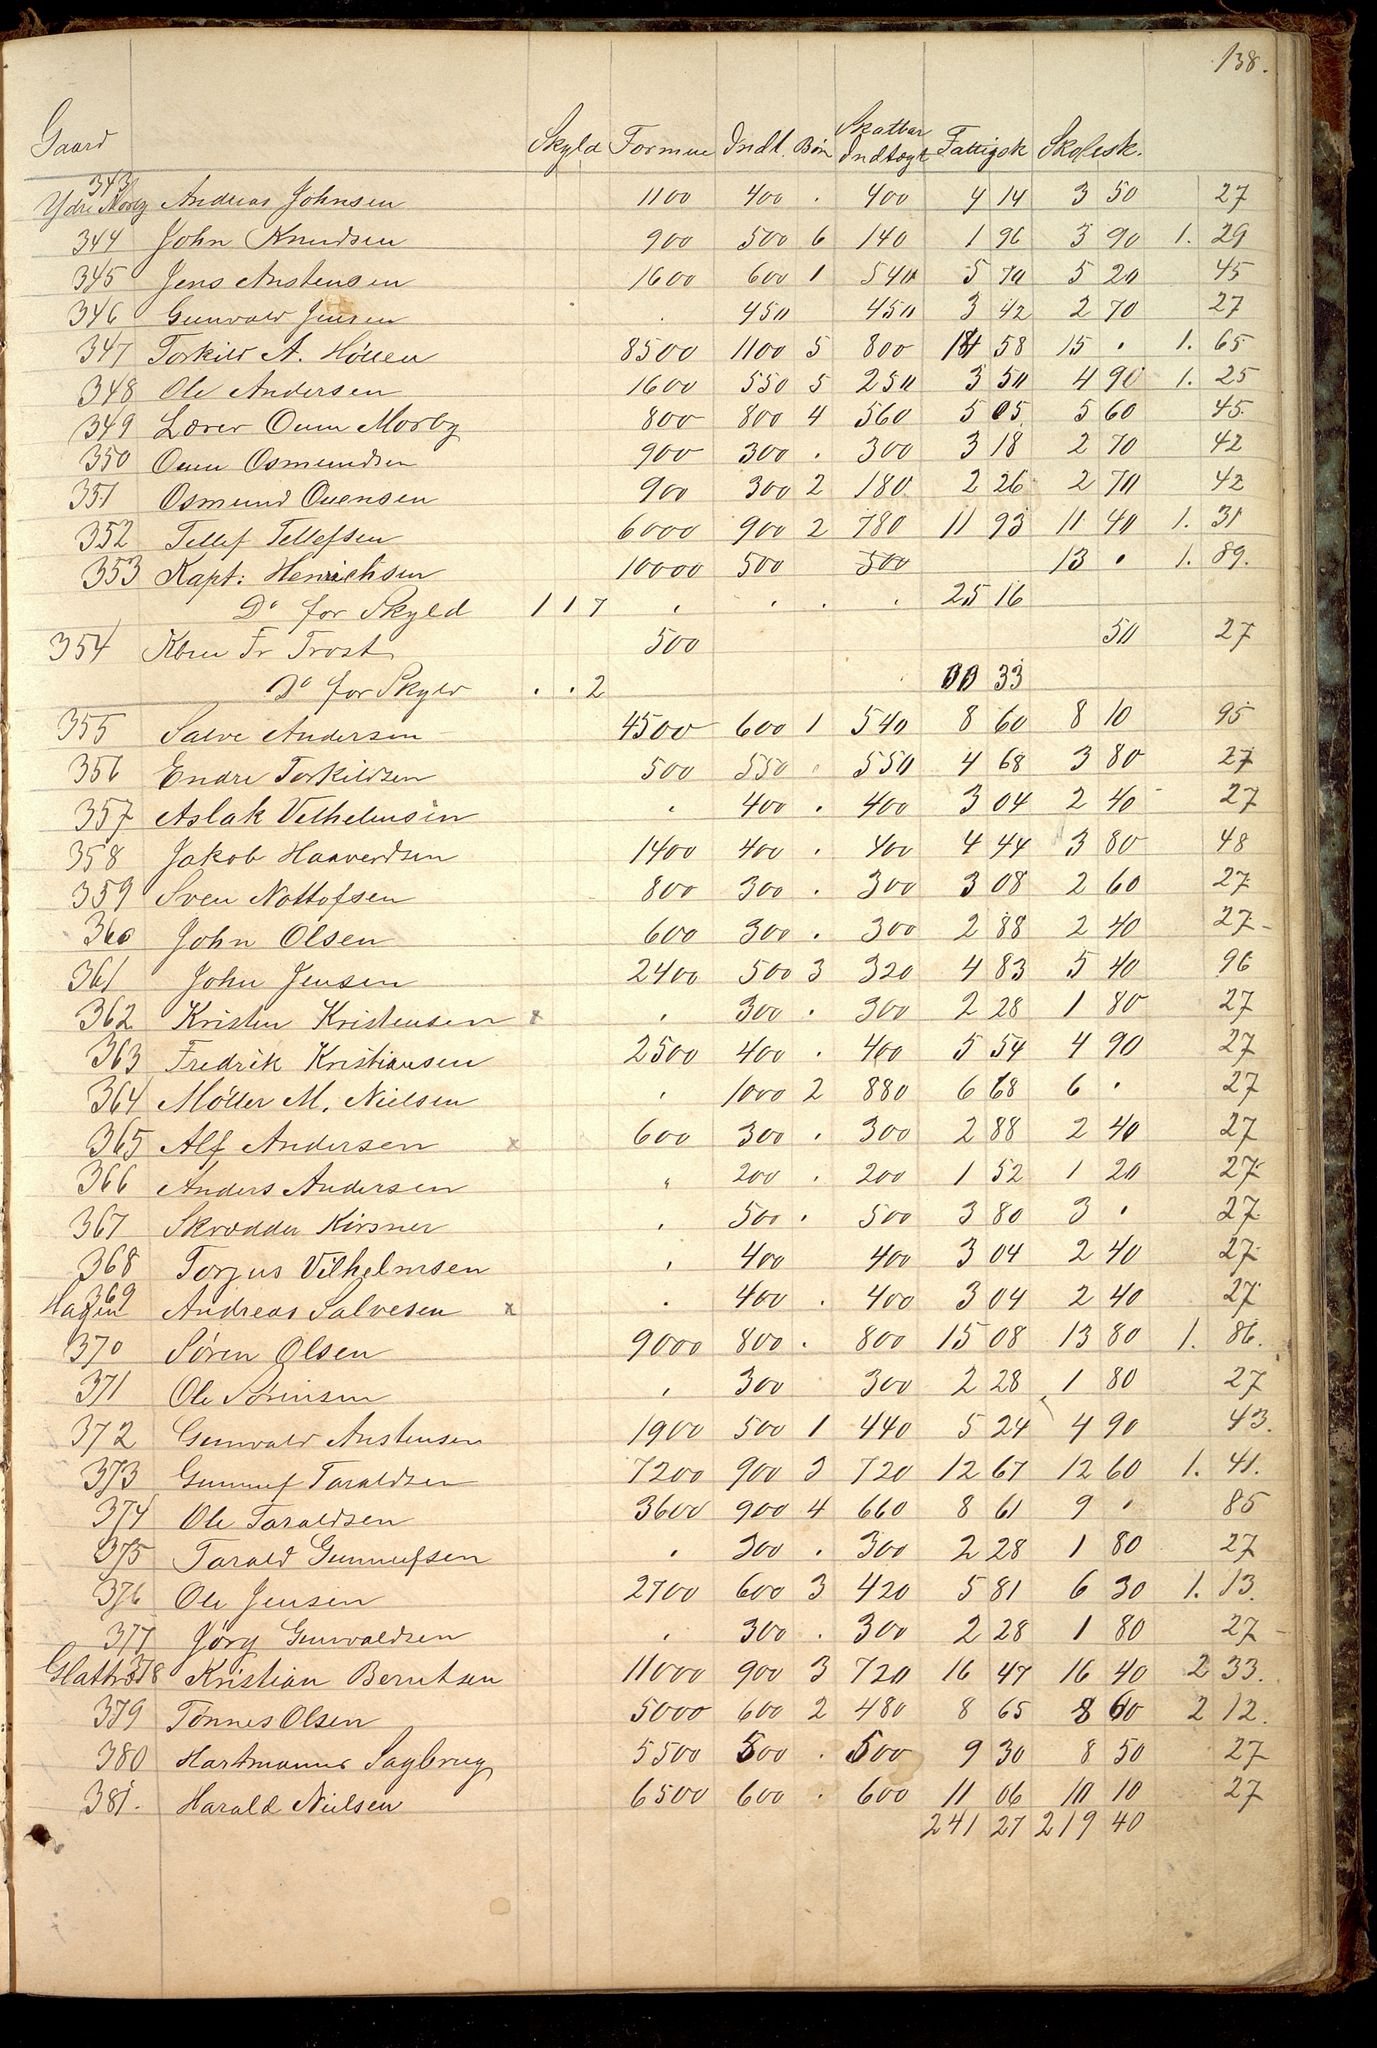 138.
Gaard Skyld Formue Indt. Børn Skatbar Indtægt Fattigsk Skolesk.
343 Ydre Morby Andreas Johnsen 1100 400 . 400 4 14 3 50 27
344 John Knudsen 900 500 6 140 1 96 3 90 1. 29
345 Jens Anstensen 1600 600 1 540 5 70 5 20 45
346 Gunvald Jensen . 450 450 3 42 2 70 27
347 Torkild A. Höllen 8500 1100 5 800 14 58 15 . 1. 65
348 Ole Andersen 1600 550 5 250 3 50 4 90 1. 25
349 Lærer Ouen Morby 800 800 4 560 5 05 5 60 45
350 Ouen Osmundsen 900 300 . 300 3 18 2 70 42
351 Osmund Ouensen 900 300 2 180 2 26 2 70 42
352 Tellef Tellefsen 6000 900 2 780 11 93 11 40 1. 31
353 Kapt: Henrichsen 10000 500 500 13 . 1. 89.
Do for Skyld 1 1 7 . . . . 25 16
354 Fr Trost 500 50 27
Do for Skyld . . 2 . 00 33
355 Salve Andersen 4500 600 1 540 8 60 8 10 95
356 Endre Torkildsen 500 550 . 550 4 68 3 80 27
357 Aslak Vilhelmsen . 400 . 400 3 04 2 40 27
358 Jakob Haaverdsen 1400 400 . 400 4 44 3 80 48
359 Sven Nottofsen 800 300 . 300 3 08 2 60 27
360 John Olsen 600 300 . 300 2 88 2 40 27
361 John Jensen 2400 500 3 320 4 83 5 40 96
362 Kristen Kristensen x . 300 . 300 2 28 1 80 27
363 Fredrik Kristiansen 2500 400 . 400 5 54 4 90 27
364 Möller M. Nielsen . 1000 2 880 6 68 6 . 27
365 Alf Andersen x 600 300 . 300 2 88 2 40 27
366 Anders Andersen " 200 . 200 1 52 1 20 27
367 Skrædder Kirsner . 500 . 500 3 80 3 . 27
368 Torjus Vilhelmsen . 400 400 3 04 2 40 27
369 Hagen Andreas Salvesen x . 400 . 400 3 04 2 40 27
370 Sören Olsen 9000 800 . 800 15 08 13 80 1. 86.
371 Ole Sörensen . 300 300 2 28 1 80 27
372 Gunvald Anstensen 1900 500 1 440 5 24 4 90 43.
373 Gunnuf Taraldsen 7200 900 3 720 12 67 12 60 1. 41.
374 Ole Taraldsen 3600 900 4 660 8 61 9 . 85
375 Tarald Gunnufsen . 300 . 300 2 28 1 80 27
376 Ole Jensen 2700 600 3 420 5 81 6 30 1. 13.
377 Jörg Gunvaldsen . 300 . 300 2 28 1 80 27
378 Kristian Berntsen 11000 900 3 720 16 47 16 40 2 33.
379 Tönnes Olsen 5000 600 2 480 8 65 8 60 2 12.
380 Hartmanns Sagbrug 5500 500 . 500 9 30 8 50 27
381. Harald Nielsen 6500 600 . 600 11 06 10 10 27
241 27 219 40